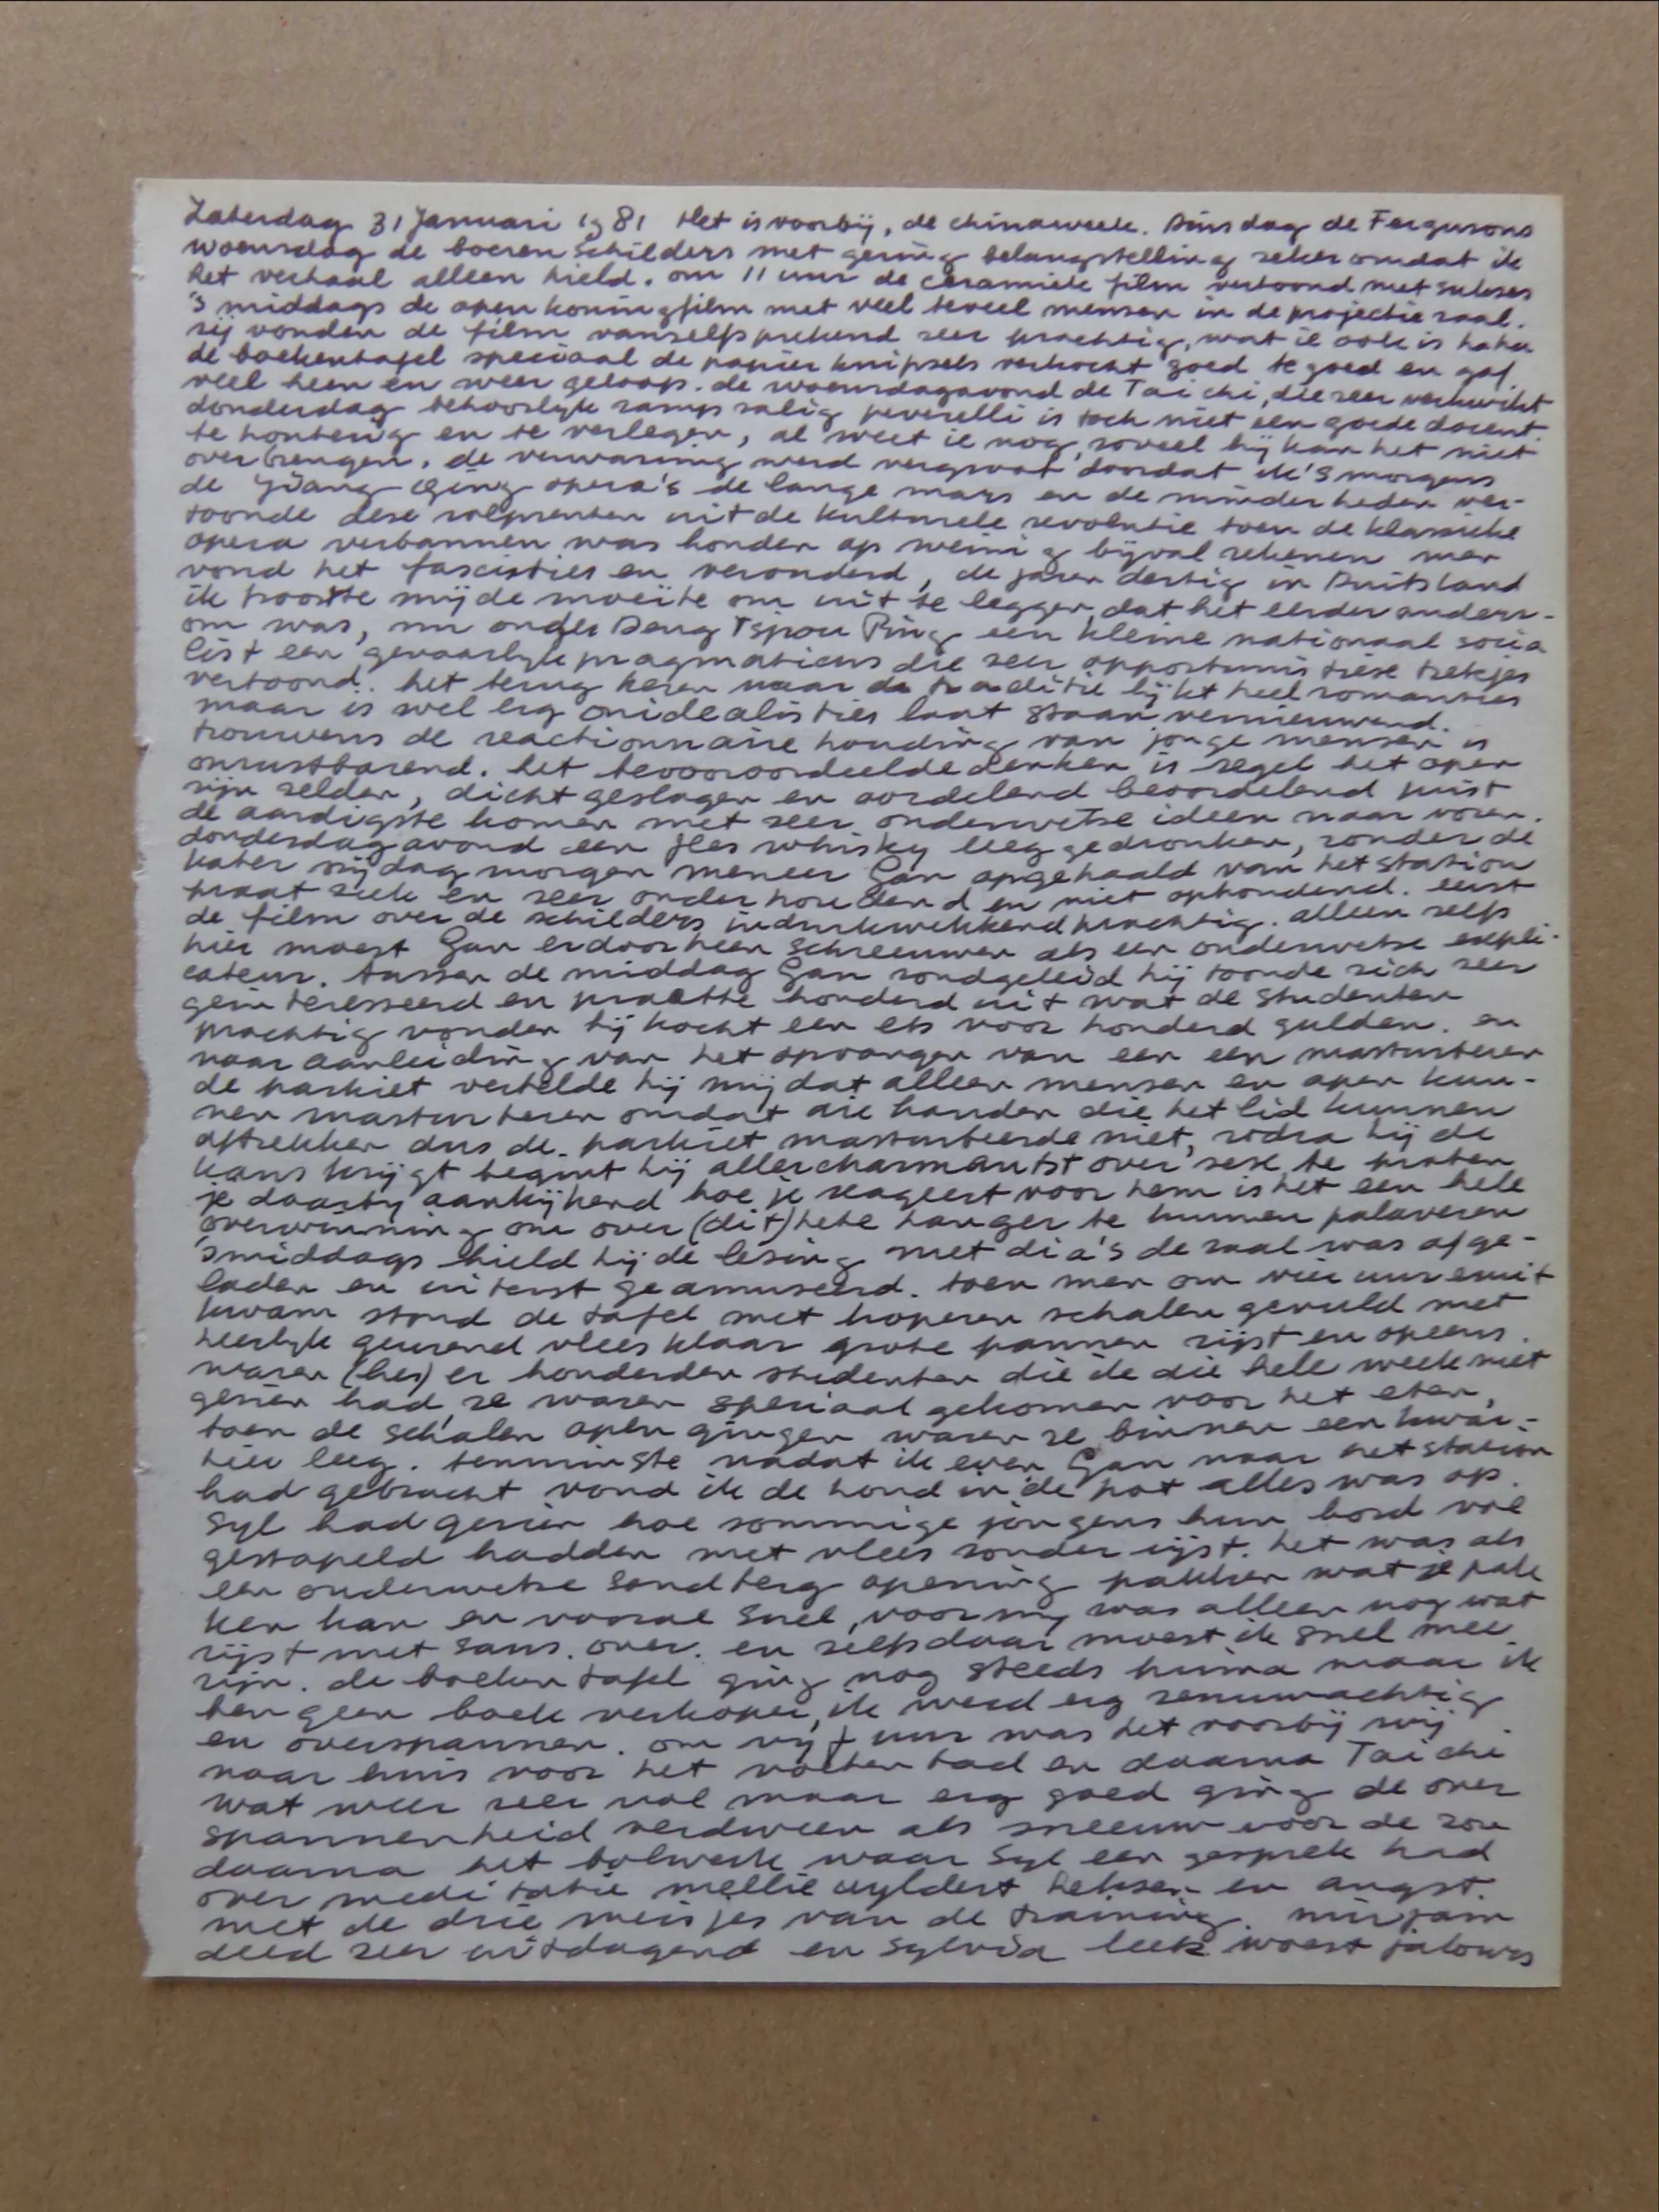 Zaterdag 31 Januari 1981 Het is voorbij, de chinaweek. Dinsdag de Fergusons
woensdag de boeren schilders met gering belangstelling zeker omdat ik
het verhaal alleen hield. om 11 uur de ceramiek film vertoond met sukses
's middags de apen koningfilm met veel teveel mensen in de projectie zaal.
zij vonden de film vanselfsprekend zeer prachtig, wat ie ook is haha
de boekentafel speciaal de papier knipsels verkocht goed te goed en gaf
veel heen en weer geloop. de woensdagavond de Tai chi, die zeer verkwikt
donderdag behoorlijk rampzalig peverelli is toch niet een goede docent
te houterig en te verlegen, al weet ie nog zoveel hij kan het niet
overbrengen. de verwarring werd vergroot doordat ik 's morgens
de Yiang Qing opera's de lange mars en de minderheden ver-
toonde deze rolprenten uit de kulturele revolutie toen de klassieke
opera verbannen was konden op weinig bijval rekenen men
vond het fascisties en verouderd, de jaren dertig in Duitsland
ik trooste mij de moeite om uit te leggen dat het eerder anders-
om was, nu onder Deng Tsjou Ping een kleine nationaal socia
list een gevaarlijk pragmaticus die zeer opportunistiese trekjes
vertoond. het terug keren naar de traditie lijkt heel romanties
maar is wel erg onidealisties laat staan vernieuwend.
trouwens de reactionnaire houding van jonge mensen is
onrustbarend. het bevooroordeelde denken is regel het open
zijn zelden, dicht geslagen en oordelend beoordelend juist
de aardigste komen met zeer ouderwetse ideen naar voren.
donderdagavond een fles whisky leeg gedronken, zonder de
kater vrijdag morgen meneer Gan opgehaald van het station
praat ziek en zeer onderhoudend en niet ophoudend. eerst
de film over de schilders indrukwekkend prachtig. alleen zelfs
hier moest Gan erdoorheen schreeuwen als een ouderwetse expli-
cateur. tussen de middag Gan rondgeleid hij toonde zich zeer
geinteresseerd en praatte honderd uit wat de studenten
prachtig vonden hij kocht een ets voor honderd gulden. en
naar aanleiding van het opvangen van een een masturberen
de parkiet vertelde hij mij dat alleen mensen en apen kun-
nen masturberen omdat die handen die het lid kunnen
aftrekken dus de parkiet masturbeerde niet, zodra hij de
kans krijgt begint hij allercharmantst over sexe te praten
je daarbij aankijkend hoe je reageert voor hem is het een hele
overwinning om over (dit) hete hanger te kunnen palaveren
'smiddags hield hij de lezing met dia's de zaal was afge-
laden en uiterst geamuseerd. toen men om vier uur eruit
kwam stond de tafel met koperen schalen gevuld met
heerlijk geurend vlees klaar grote pannen rijst en opeens.
waren (hes) er honderden studenten die ik die hele week niet
gezien had, ze waren speciaal gekomen voor het eten,
toen de schalen open gingen waren ze binnen een kwar-
tier leeg. tenminste nadat ik even Gan naar het station
had gebracht vond ik de hond in de pot alles was op.
Syl had gezien hoe sommige jongens hun bord vol
gestapeld hadden met vlees zonder rijst. het was als
een ouderwetse Sandberg opening pakken wat je pak
ken kan en vooral snel, voor mij was alleen nog wat
rijst met saus. over. en zelfs daar moest ik snel mee
zijn. de boeken tafel ging nog steeds prima maar ik
ben geen boek verkoper, ik werd erg zenuwachtig
en overspannen. om vijf uur was het voorbij wij
naar huis voor het voeten bad en daarna Tai chi
wat weer zeer vol maar erg goed ging de over
spannenheid verdween als sneeuw voor de zon
daarna het bolwerk waar Syl een gesprek had
over meditatie mellie uyldert heksen en angst.
met de drie meisjes van de training. mirjam
deed zeer uitdagend en Sylvia leek woest jalours